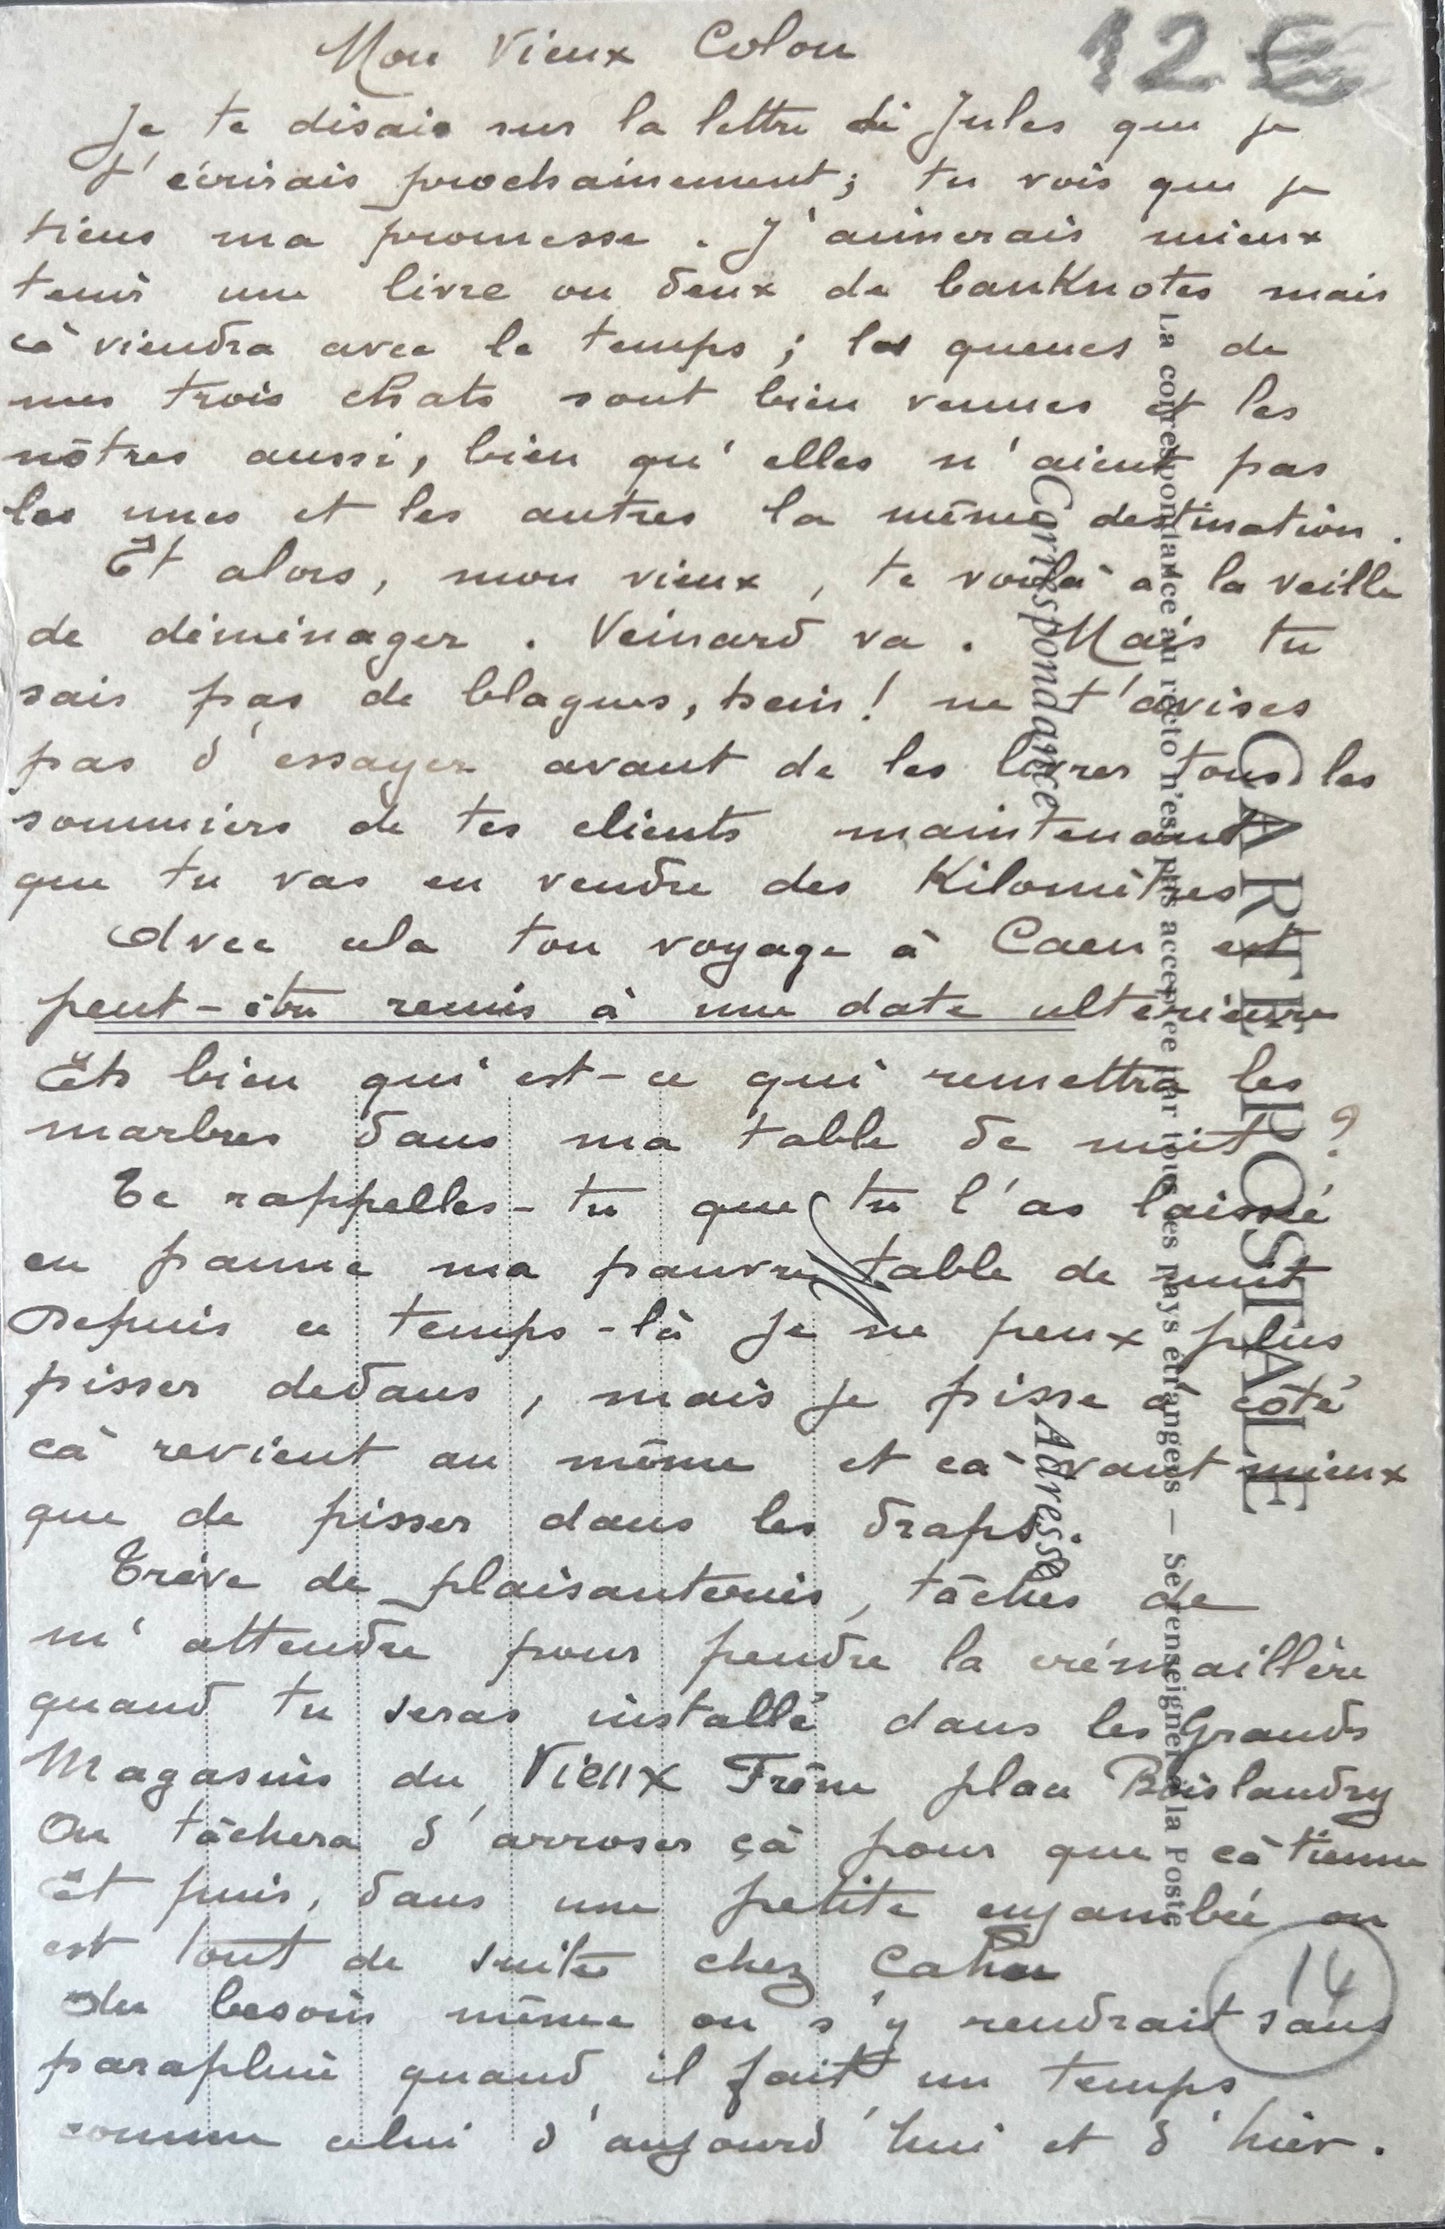 Mon Vieux Colon
12 €
Je te disais sur la lettre de Jules que je
t'écrirais prochainement; tu vois que je
tiens ma promesse. J'aimerais mieux
tenir une livre ou deux de banknotes mais
çà viendra avec le temps; les queues de
mes trois chats sont bien venues et les
nôtres aussi, bien qu'elles n'aient pas
les unes et les autres la même destination.
Et alors, mon vieux, te voilà à la veille
de déménager. Veinard va. Mais tu
sais pas de blagues, hein! ne t'avises
pas d'essayer avant de les livrer tous les
sommiers de tes clients maintenant
que tu vas en vendre des Kilomètres
Avec cela ton voyage à Caen est
peut-être remis à une date ultérieure
Eh bien qui est-ce qui remettra les
marbres dans ma table de nuit?
Te rappelles-tu que tu l'as laissé
en panne ma pauvre table de nuit
Depuis ce temps-là je ne peux plus
pisser dedans, mais je pisse à côté
cà revient au même et cà vaut mieux
que de pisser dans les draps.
Trève de plaisanteries, tâches de
m'attendre pour pendre la crémaillère
quand tu seras installé dans les Grands
Magasins du Vieux Frêne place Boislandry
On tâchera d'arroser çà pour que cà tienne
Et puis, dans une petite enjambée on
est tout de suite chez Cahu
Au besoin même on s'y rendrait sans
parapluie quand il fait un temps
comme celui d'aujourd'hui et d'hier.
14
CARTE POSTALE
La correspondance au recto n'est pas acceptée par tous les pays étrangers — Se renseigner à la Poste
Correspondance
Adresse